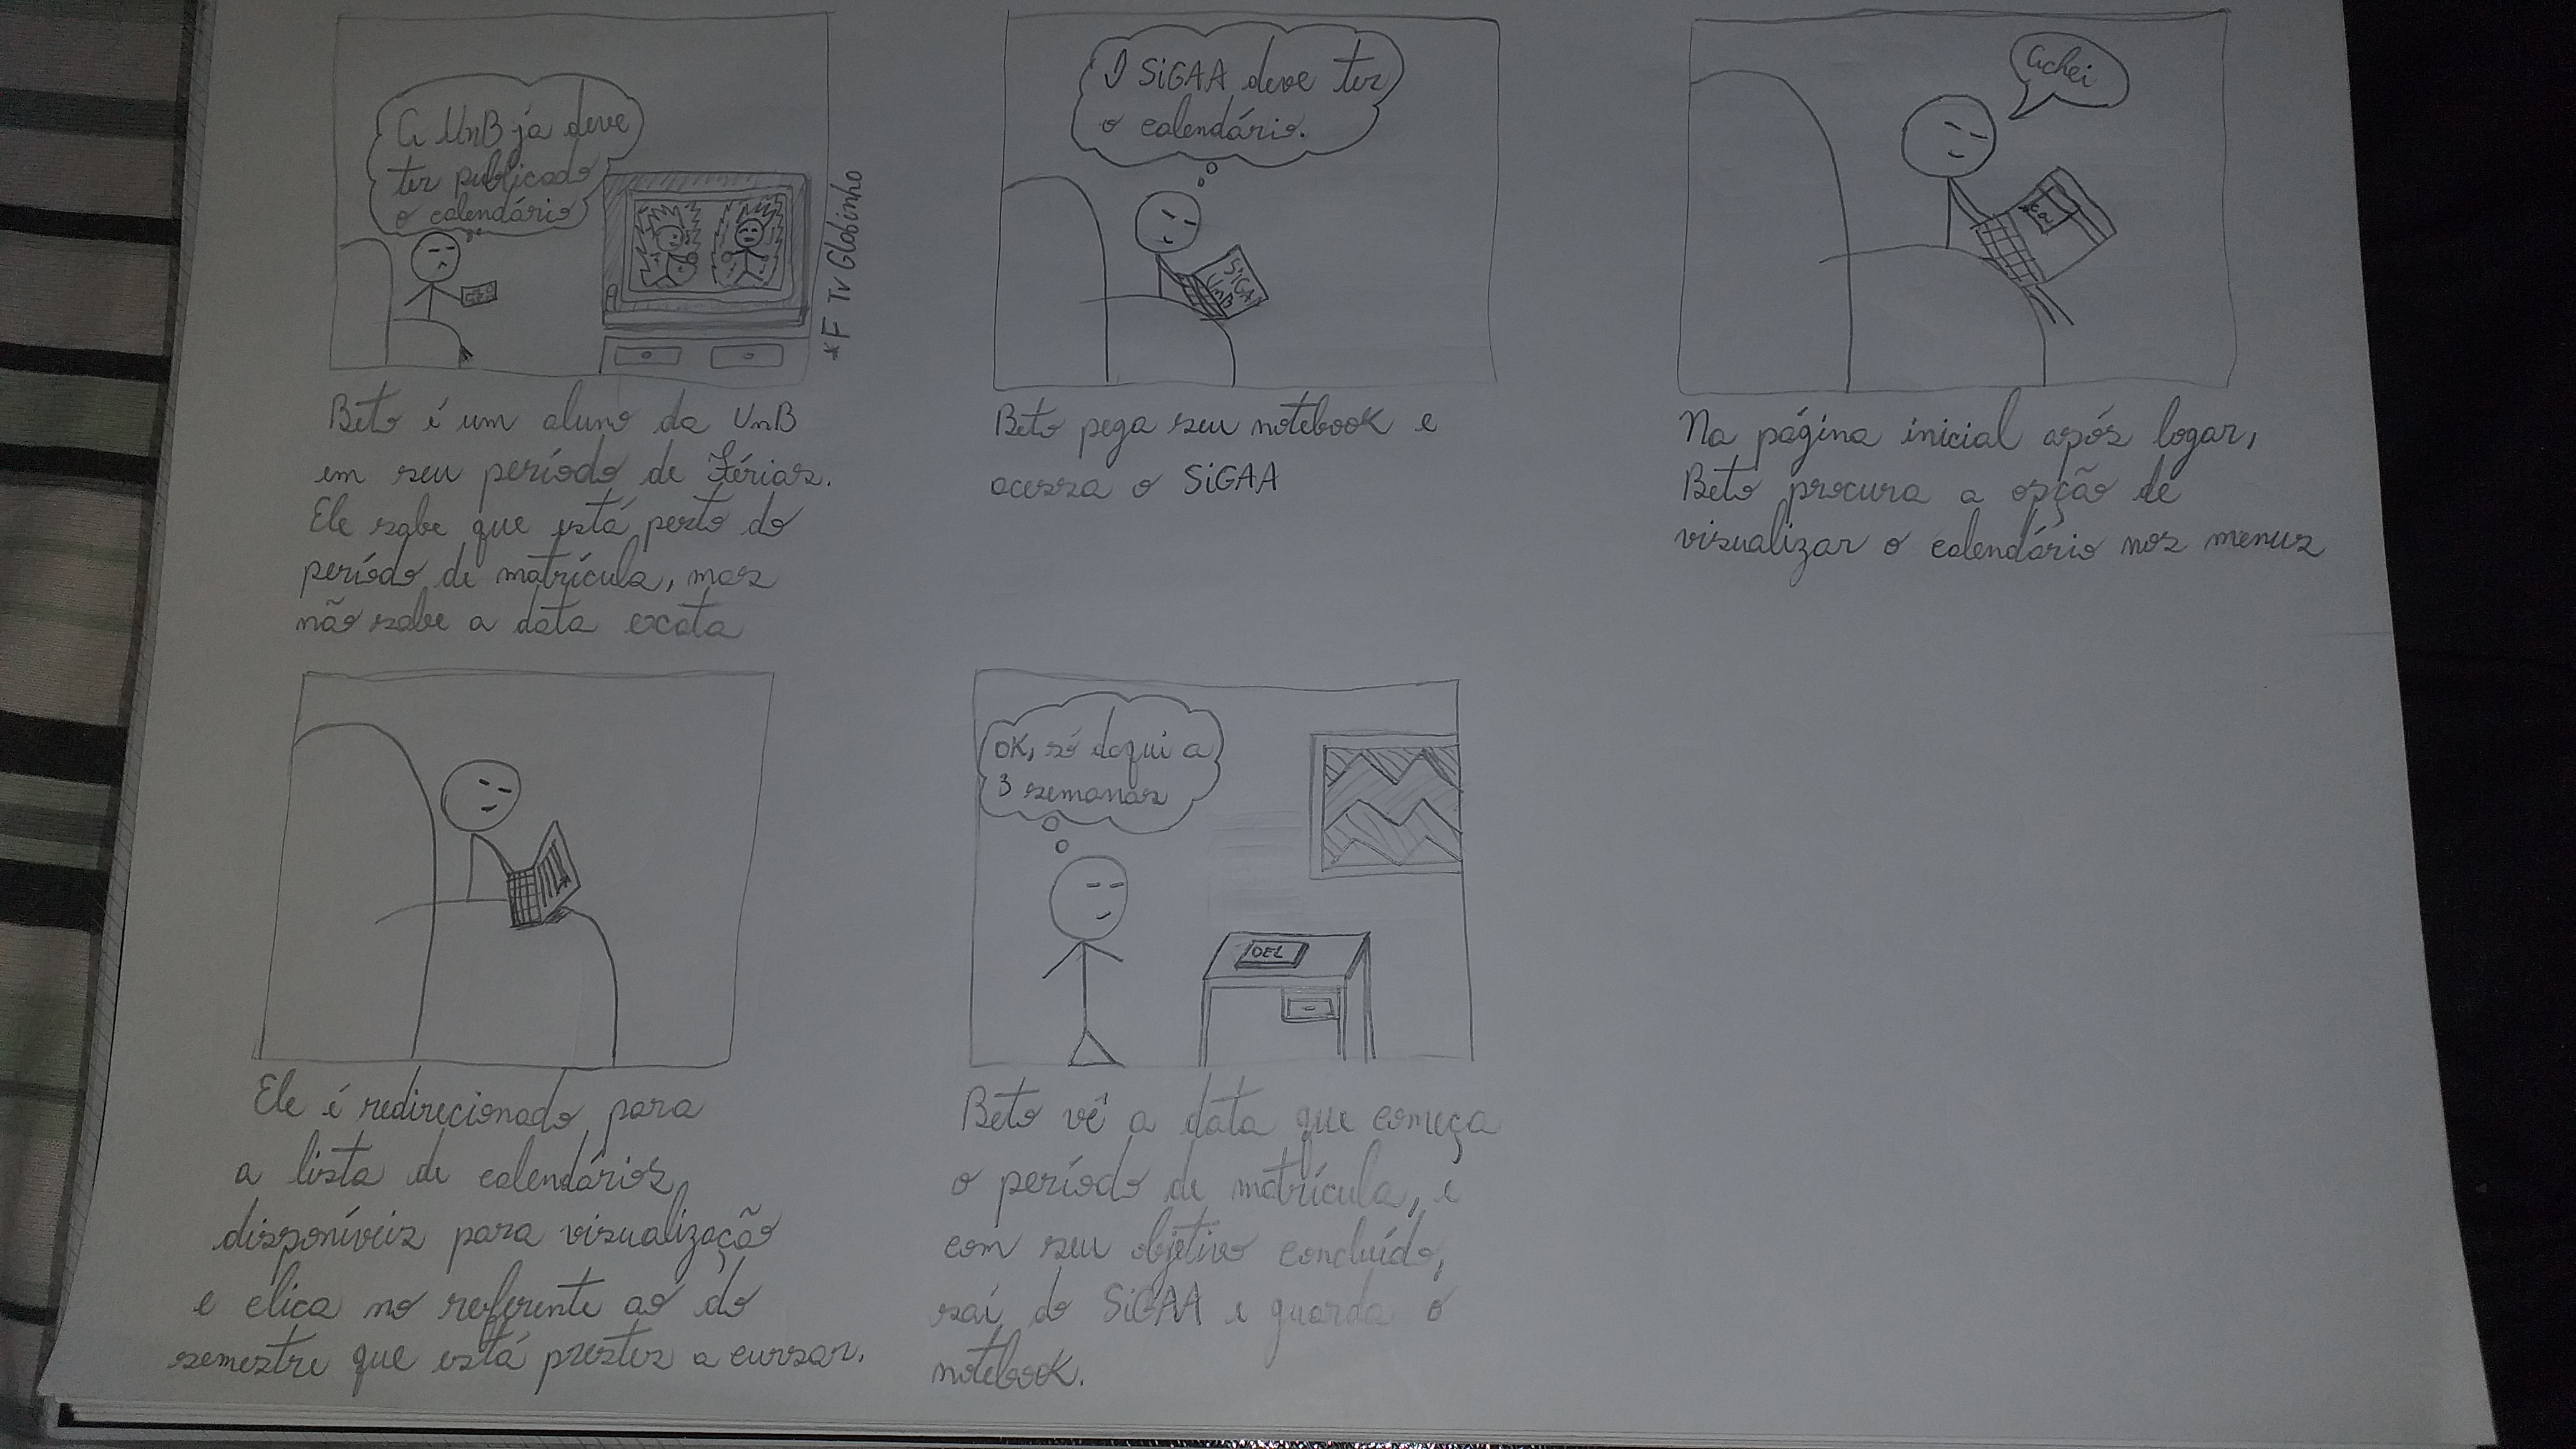 A UnB já deve
ter publicado
o calendário
*F TV Globinho
Beto é um aluno da UnB
em seu período de Férias.
Ele sabe que está perto do
período de matrícula, mas
não sabe a data exata
O SiGAA deve ter
o calendário.
SiGAA
UnB
Beto pega seu notebook e
acessa o SiGAA
Achei
Na página inicial após logar,
Beto procura a opção de
visualizar o calendário nos menus
Ele é redirecionado para
a lista de calendários
disponíveis para visualização
e clica no referente ao do
semestre que está prestes a cursar.
OK, só daqui a
3 semanas
DEL
Beto vê a data que começa
o período de matrícula, e
com seu objetivo concluído,
sai do SiGAA e guarda o
notebook.